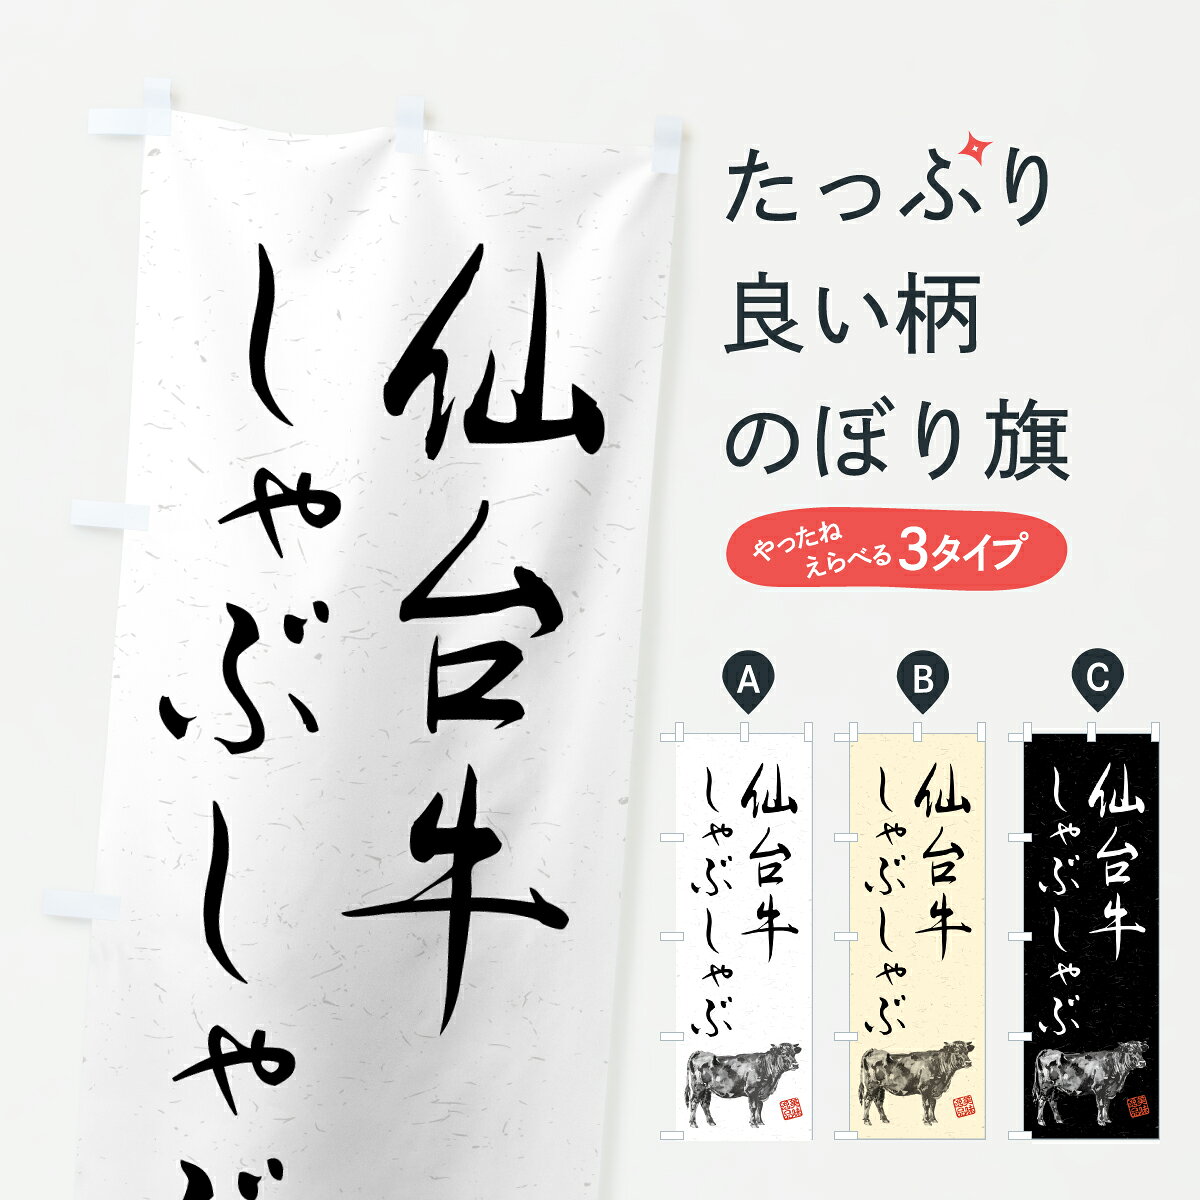 仙台牛
しゃぶしゃぶ
たっぷり
良い柄
のぼり旗
やったね
えらべる3タイプ
A
B
C
仙台牛
しゃぶしゃぶ
仙台牛
しゃぶしゃぶ
仙台牛
しゃぶしゃぶ